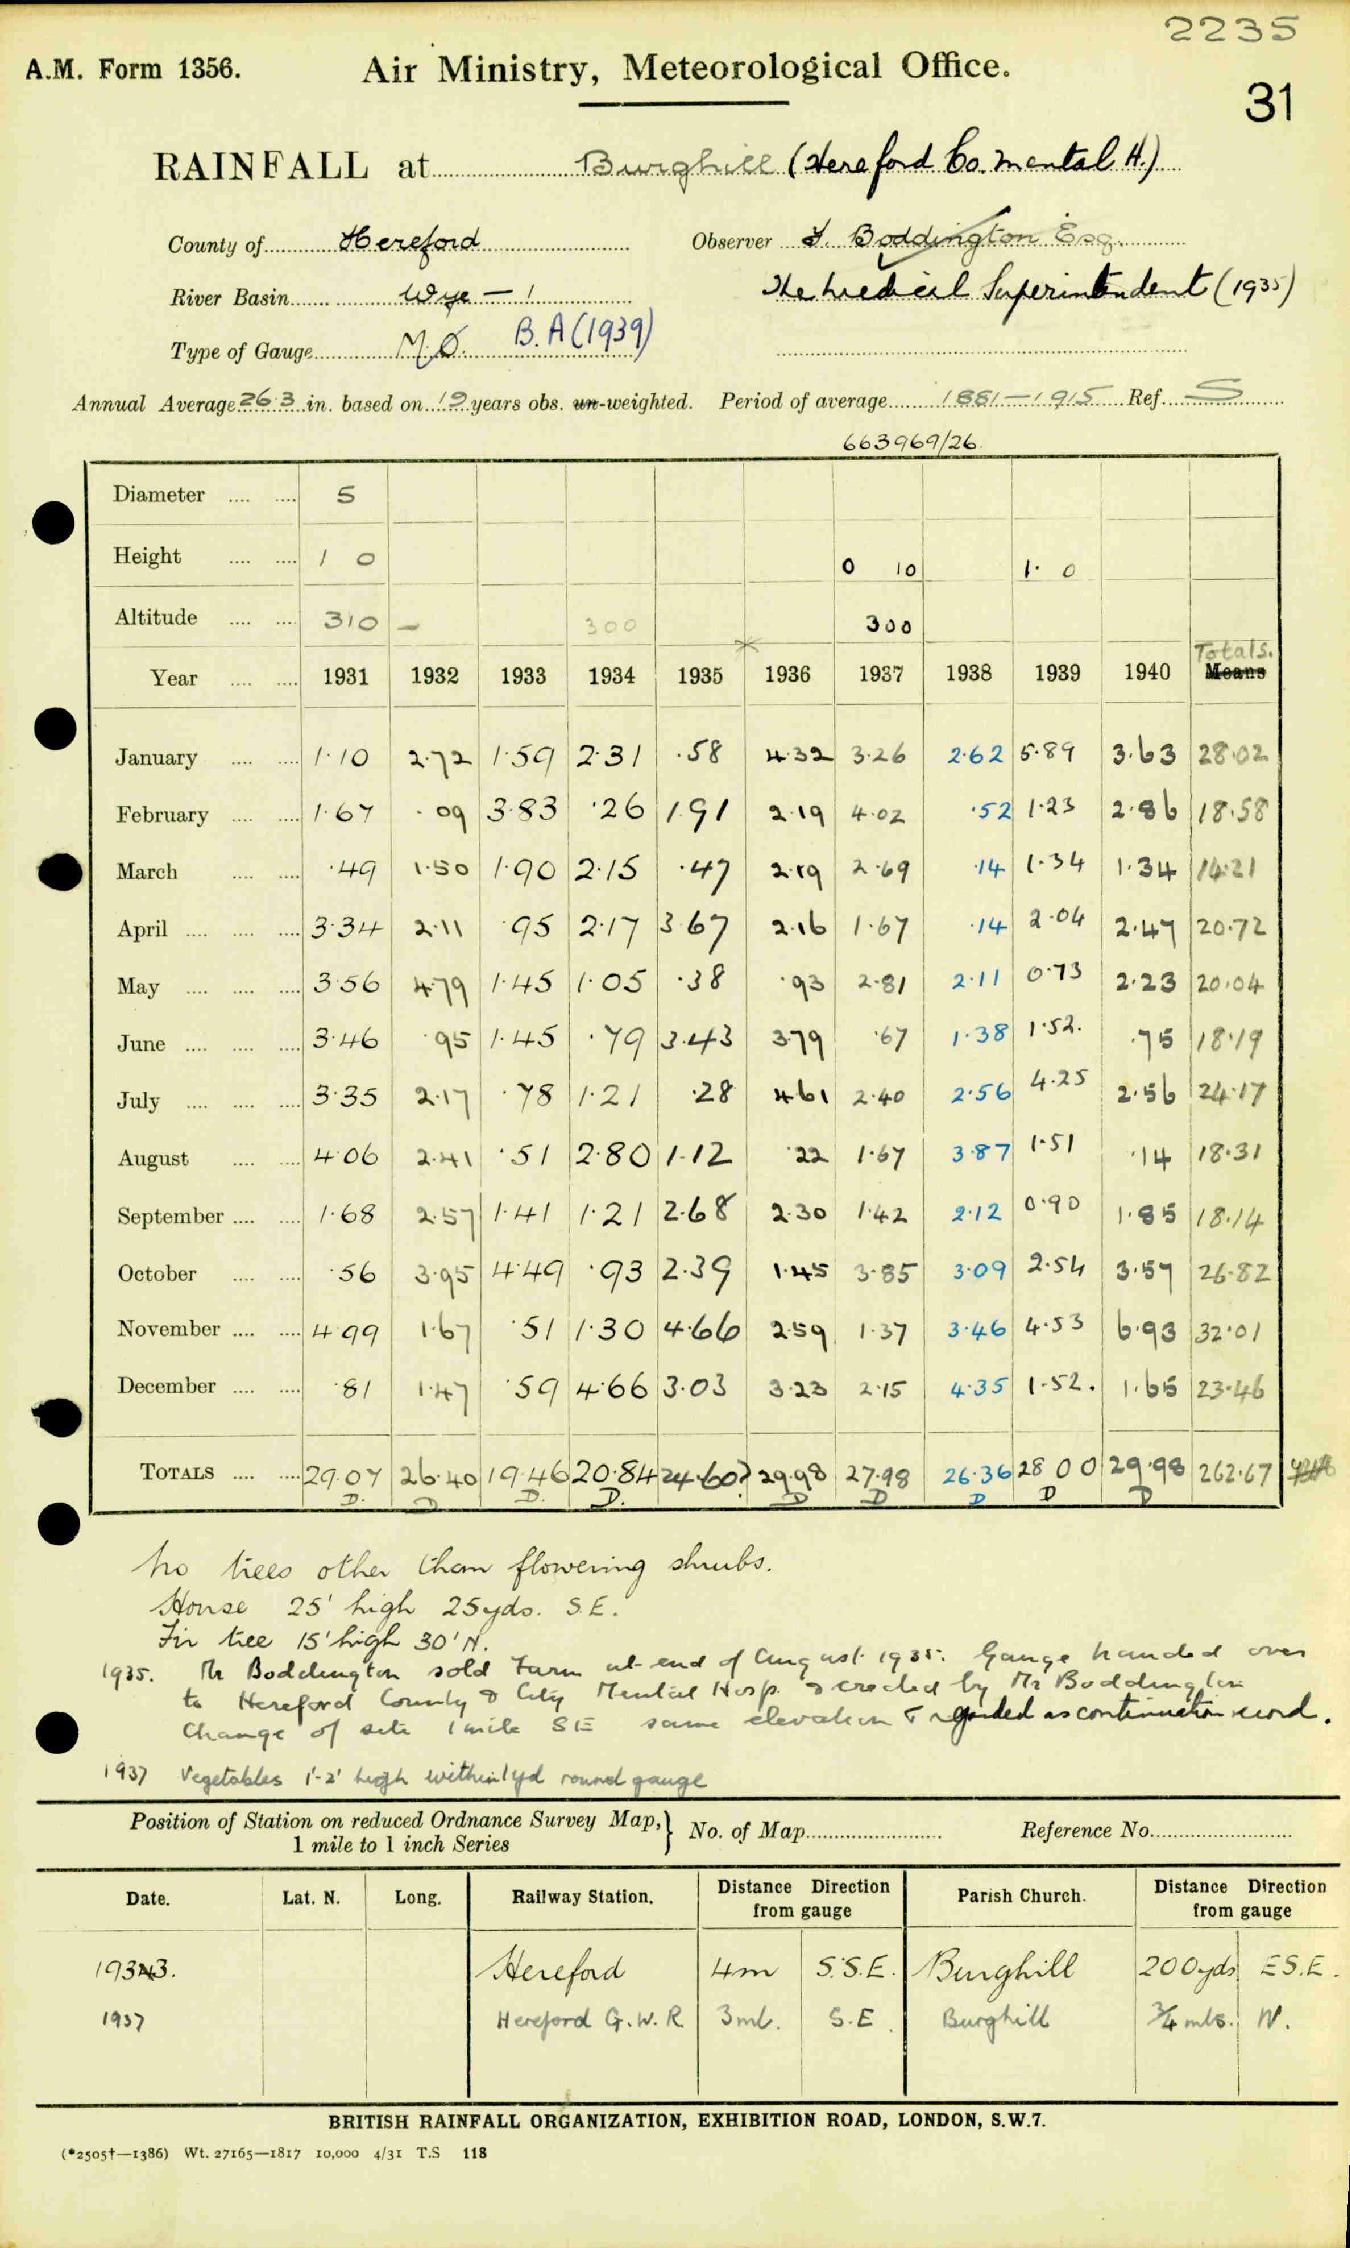 2235
A.M. Form 1356. Air Ministry, Meteorological Office.
31
RAINFALL at Burghill (Hereford Co. Mental H.)
County of Hereford Observer F. Boddington Esq.
River Basin Wye — 1 The Medical Superintendent (1935)
Type of Gauge M.O. B.A (1939)
Annual Average 26.3 in. based on 19 years obs. un-weighted. Period of average 1881—1915 Ref. S
663969/26
Diameter 5
Height 1 0 0 10 1. 0
Altitude 310 — 300 300
Totals.
Year 1931 1932 1933 1934 1935 1936 1937 1938 1939 1940 Means
January 1.10 2.72 1.59 2.31 .58 4.32 3.26 2.62 5.89 3.63 28.02
February 1.67 .09 3.83 .26 1.91 2.19 4.02 .52 1.23 2.86 18.58
March .49 1.50 1.90 2.15 .47 2.19 2.69 .14 1.34 1.34 14.21
April 3.34 2.11 .95 2.17 3.67 2.16 1.67 .14 2.04 2.47 20.72
May 3.56 4.79 1.45 1.05 .38 .93 2.81 2.11 0.73 2.23 20.04
June 3.46 .95 1.45 .79 3.43 3.79 .67 1.38 1.52. .75 18.19
July 3.35 2.17 .78 1.21 .28 4.61 2.40 2.56 4.25 2.56 24.17
August 4.06 2.41 .51 2.80 1.12 .22 1.67 3.87 1.51 .14 18.31
September 1.68 2.57 1.41 1.21 2.68 2.30 1.42 2.12 0.90 1.85 18.14
October .56 3.95 4.49 .93 2.39 1.45 3.85 3.09 2.54 3.57 26.82
November 4.99 1.67 .51 1.30 4.66 2.59 1.37 3.46 4.53 6.93 32.01
December .81 1.47 .59 4.66 3.03 3.23 2.15 4.35 1.52. 1.65 23.46
TOTALS 29.07 26.40 19.46 20.84 24.60? 29.98 27.98 26.36 28 00 29.98 262.67
D. D D. D. D D D D D
No trees other than flowering shrubs.
House 25' high 25yds. S.E.
Fir tree 15' high 30' N.
1935. Mr Boddington sold Farm at end of August 1935. Gauge handed over
to Hereford County & City Mental Hosp. & erected by Mr Boddington
Change of site 1 mile SE same elevation & regarded as continuation record.
1937 Vegetables 1'-2' high within 1yd round gauge
Position of Station on reduced Ordnance Survey Map, 1 mile to 1 inch Series } No. of Map Reference No.
Date. Lat. N. Long. Railway Station. Distance Direction from gauge Parish Church. Distance Direction from gauge
1933. Hereford 4m S.S.E. Burghill 200yds E.S.E.
1937 Hereford G.W.R 3ml. S.E. Burghill 3/4 mls. N.
BRITISH RAINFALL ORGANIZATION, EXHIBITION ROAD, LONDON, S.W.7.
(*2505†—1386) Wt. 27165—1817 10,000 4/31 T.S 118